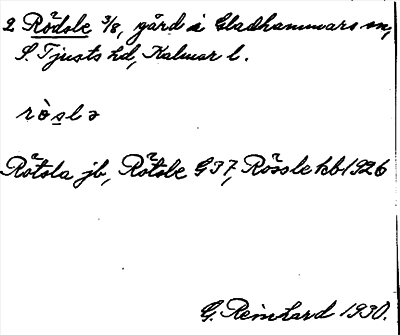 2 Rödsle 3/8, gård i Gladhammars sn,
S. Tjusts hd, Kalmar l.
rò̤slə
Rötsla jb, Rötsle G 37, Rössle kb 1926
G. Reinhard 1930.